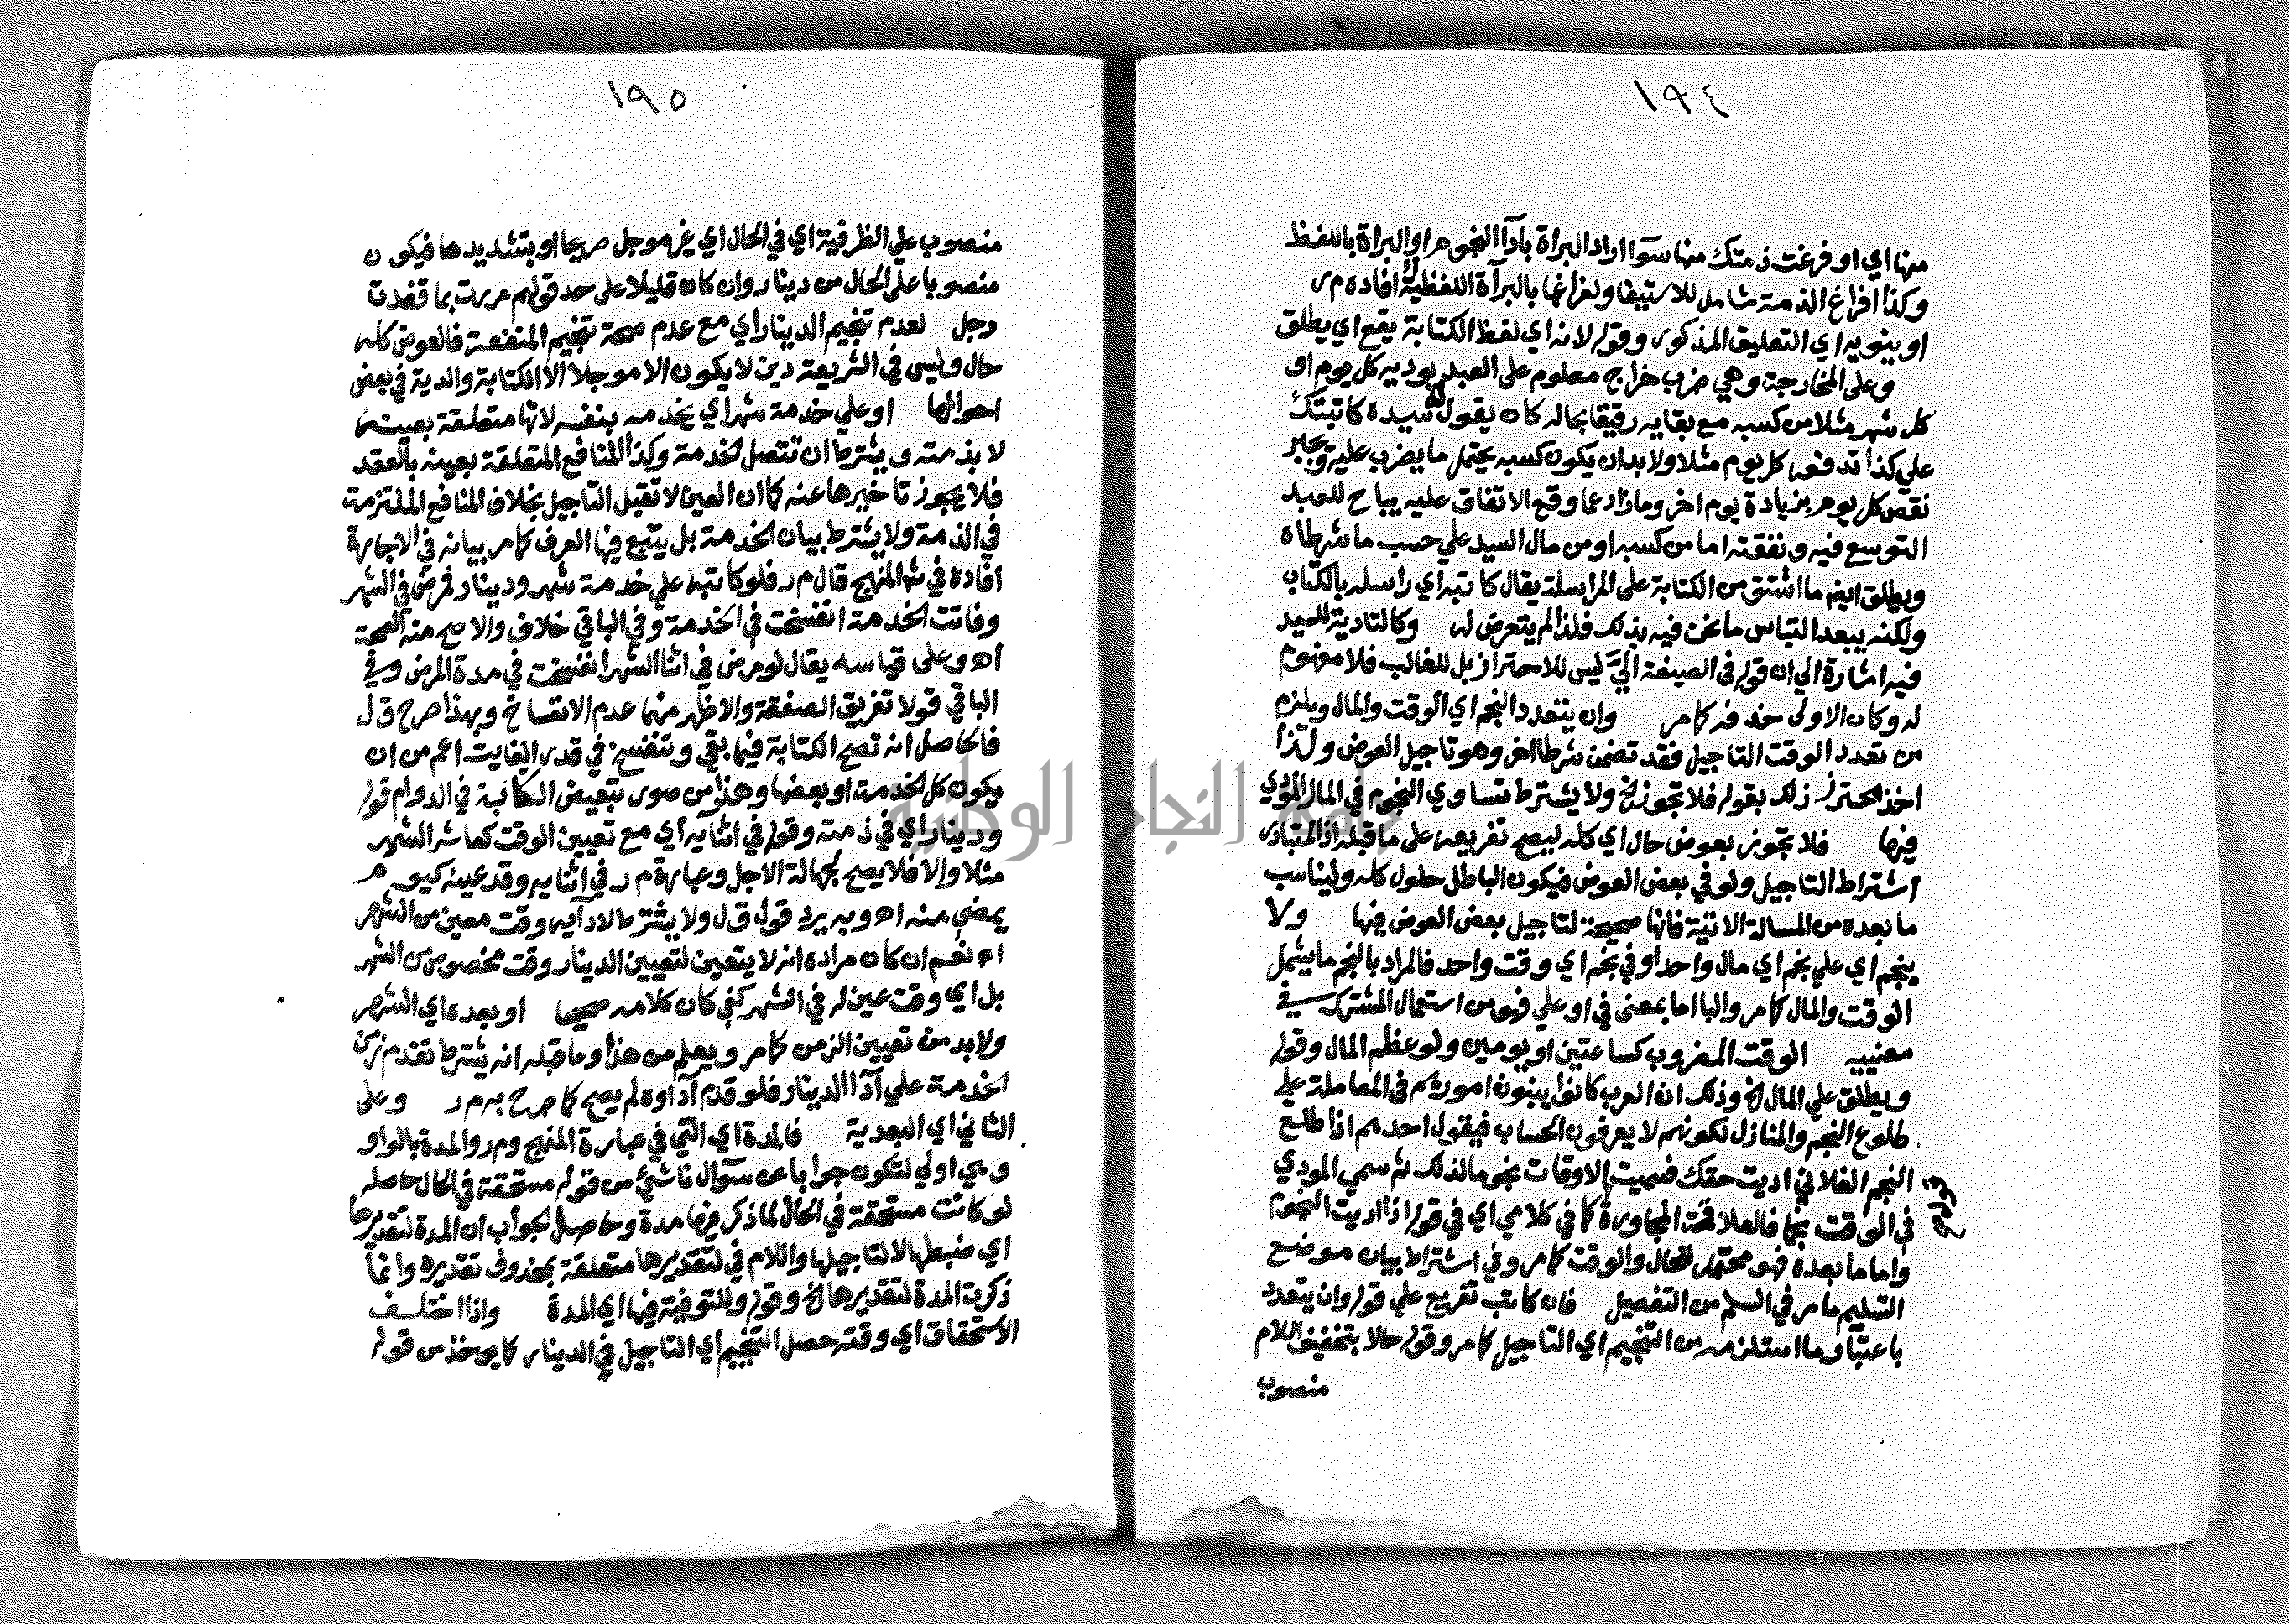 ١٩٤
منها اي او فرغت ذمتك منها سوآا اراد البراة بادآا النجوم م ر او البراة باللفظ
وكذا افراغ الذمة شامل للاستيفا ولفراغها بالبرآة اللفظية افاده م ر
او ينويه اي التعليق المذكور وقوله لانه اي لفظ الكتابة يقع اي يطلق
وعلى المخارجة وهي ضرب خراج معلوم على العبد يوديه كل يوم او
كل شهر مثلا من كسبه مع بقايه رقيقا بحاله كان يقول له سيده كاتبتك
علي كذا تدفعه كل يوم مثلا ولا بدان يكون كسبه يحتمل ما يضرب عليه ويجبر
نقص كل يوم بزيادة يوم اخر وما زاد عما وقع الاتفاق عليه يباح للعبد
التوسع فيه ونفقته اما من كسبه او من مال السيد علي حسب ما شرطاه
ويطلق ايضم ما اشتق من الكتابة على المراسلة يقال كاتبه اي راسله بالكتاب
ولكنه يبعد التباس ما نحن فيه بذلك فلذا لم يتعرض له وكالتادية للسيد
فيه اشارة الي ان قوله في الصيغة الخ ليس للاحتراز بل للغالب فلا مفهوم
له وكان الاولى حذفه كما مر وان يتعدد النجم اي الوقت والمال ويلزم
من تعدد الوقت التاجيل فقد تضمن شرطا اخر وهو تاجيل العوض ولذا
اخذ محترز ذلك بقوله فلا تجوز الخ ولا يشترط تساوي النجوم في المال المودي
فيها فلا تجوز بعوض حال اي كله ليصح تفريعه على ما قبله اذ المتبادر
اشتراط التاجيل ولو في بعض العوض فيكون الباطل حلول كله وليناسب
ما بعده من المسالة الاتية فانها صحيحة لتاجيل بعض العوض فيها ولا
بنجم اي علي نجم اي مال واحد او في نجم اي وقت واحد فالمراد بالنجم ما يشمل
الوقت والمال كما مر والبا اما بمعنى في او علي فهو من استعمال المشترك في
معنييه الوقت المضروب كساعتين او يومين ولو عظم المال وقوله
ويطلق علي المال الخ وذلك ان العرب كانوا يبنون امورهم في المعاملة علي
طلوع النجم والمنازل لكونهم لا يعرفون الحساب فيقول احدهم اذا طلع
النجم الفلاني اديت حقك فسميت الاوقات نجوما لذلك ثم سمي المودي
في الوقت نجما فالعلاقة المجاورة كما في كلامي اي في قوله اذا اديت النجوم
واما ما بعده فهو محتمل للمال والوقت كما مر وفي اشتراط بيان موضع
التسليم ما مر في السلم من التفصيل فان كاتب تفريع علي قوله وان يتعدد
باعتبار ما استلزمه من التنجيم اي التاجيل كما مر وقوله حالا بتخفيف اللام
منصوب
١٩٥
منصوب علي الظرفية اي في الحال اي غير موجل صريحا او بتشديدها فيكون
منصوبا على الحال من دينار وان كان قليلا على حد قولهم مررت بما قعدة
رجل لعدم تنجيم الدينار اي مع عدم صحة تنجيم المنفعة فالعوض كله
حال وليس في الشريعة دين لا يكون الا موجلا الا الكتابة والدية في بعض
احوالها او علي خدمة شهر اي يخدمه بنفسه لانها متعلقة بعينها
لا بذمته ويشترط ان تتصل الخدمة وكذا المنافع المتعلقة بعينه بالعقد
فلا يجوز تاخيرها عنه كما ان العين لا تقبل التاجيل بخلاف المنافع الملتزمة
في الذمة ولا يشترط بيان الخدمة بل يتبع فيها العرف كما مر بيانه في الاجارة
افاده في شه المنهج قال م ر فلو كاتبه علي خدمة شهر ودينار فمرض في الشهر
وفاتت الخدمة انفسخت في الخدمة وفي الباقي خلاف والاصح منه الصحة
اه وعلى قياسه يقال لو مرض في اثنا الشهر انفسخت في مدة المرض وفي
الباقي قولا تفريق الصفقة والاظهر منهما عدم الانفساخ وبهذا صرح ق ل
فالحاصل انه تصح الكتابة فيما بقي وتنفسخ في قدر الفايت اعم من ان
يكون كل الخدمة او بعضها وهذا من صور تبعيض الكتابة في الدوام قوله
ودينار اي في ذمته وقوله في اثنايه اي مع تعيين الوقت كعاشر الشهر
مثلا والا فلا يصح لجهالة الاجل وعبارة م ر في اثنايه وقد عينه كيوم
يمضي منه اه وبه يرد قول ق ل ولا يشترط لادآيه وقت معين من الشهر
اه نعم ان كان مراده انه لا يتعين لتعيين الدينار وقت مخصوص من الشهر
بل اي وقت عين له في الشهر كفي كان كلامه صحيحا او بعده اي الشهر
ولا بد من تعيين الزمن كما مر ويعلم من هذا وما قبله انه يشترط تقدم زمن
الخدمة علي آدا الدينار فلو قدم آداوه لم يصح كما صرح به م ر وعلى
الثاني اي البعدية فالمدة اي التي في عبارة المنهج وم ر والمدة بالواو
وهي اولي لتكون جوابا عن سوآل ناشئ من قوله مستحقة في الحال حاصله
لو كانت مستحقة في الحال لما ذكر فيها مدة وحاصل الجواب ان المدة لتقديرها
اي ضبطها لا لتاجيلها واللام في لتقديرها متعلقة بمحذوف تقديره وانما
ذكرت المدة لتقديرها الخ وقوله وللتوفية فيها اي المدة واذا اختلف
الاستحقاق اي وقته حصل التنجيم اي التاجيل في الدينار كما يوخذ من قوله